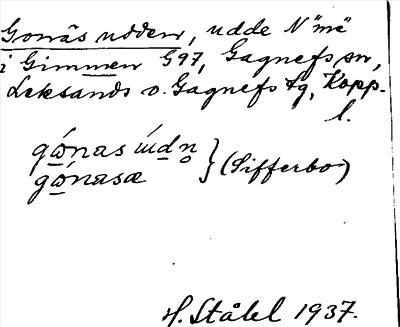 Gonäsudden, udde N"me"
i Gimmen S97, Gagnefs sn,
Leksands o. Gagnefs tg, Kopp.
l.
gώnas ɯ́dn̥
gώnasæ } (Sifferbo)
H. Ståhl 1937.